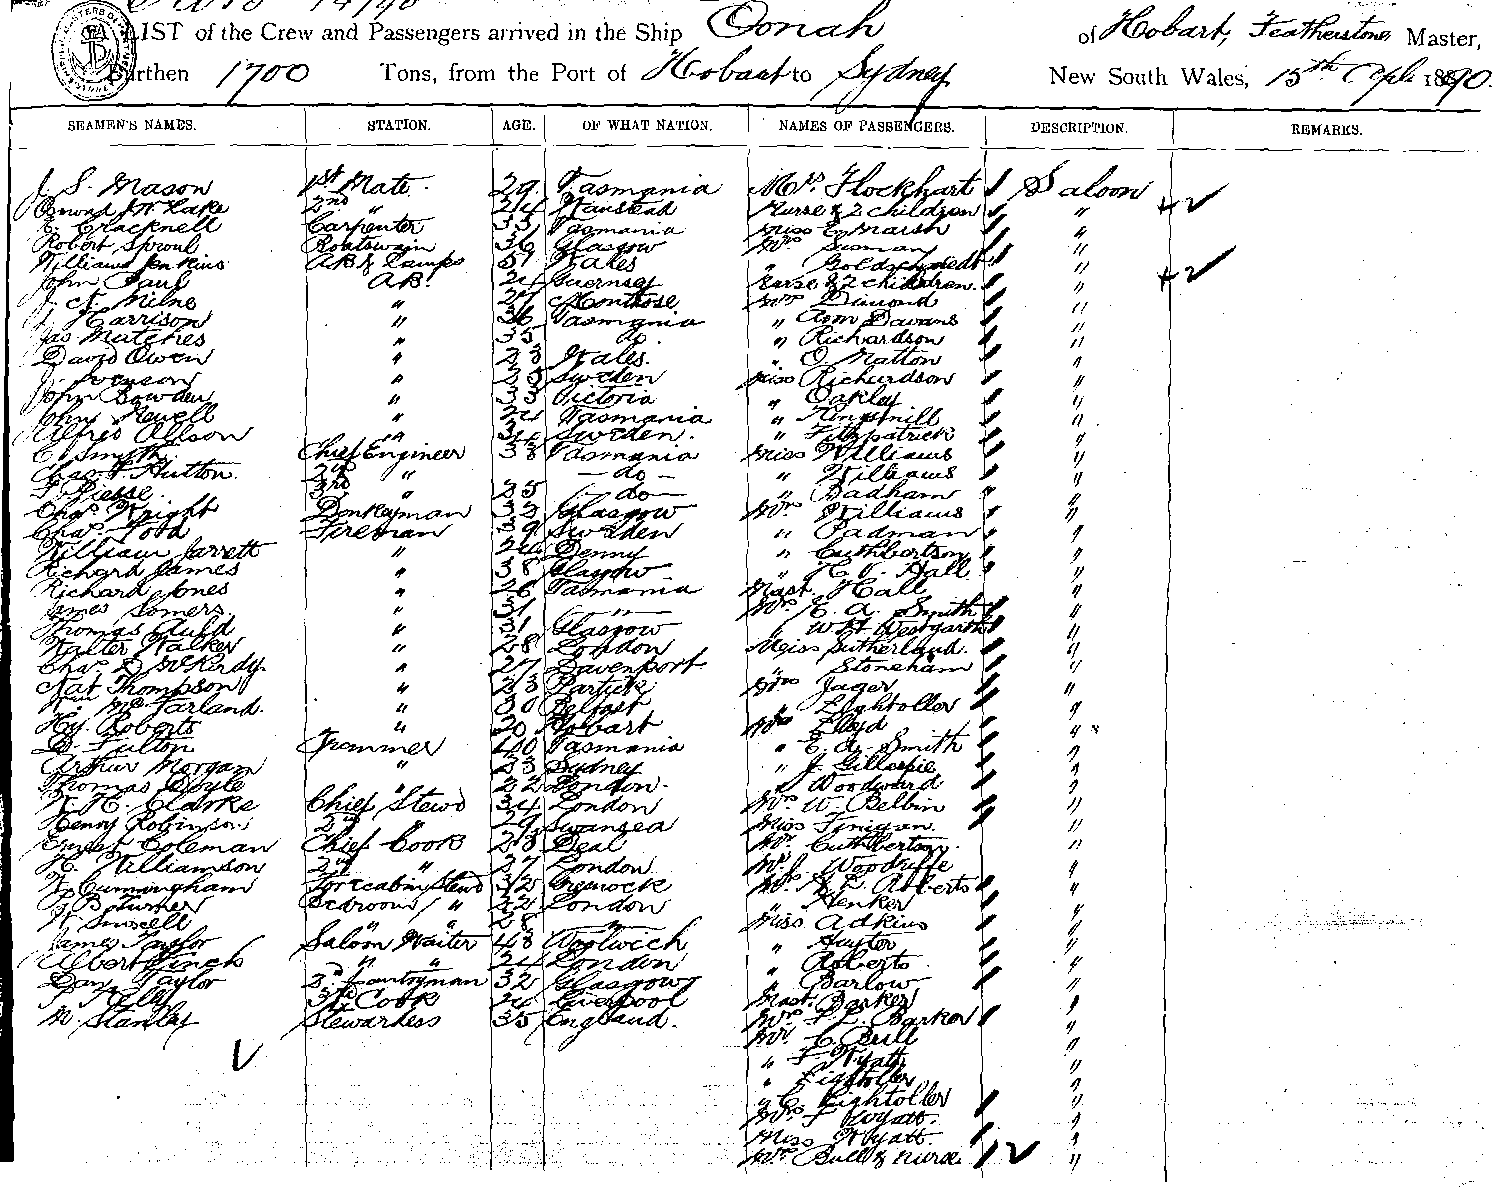 LIST of the Crew and Passengers arrived in the Ship Oonah of Hobart, Featherstone Master,
Burthen 1700 Tons, from the Port of Hobart to Sydney New South Wales, 15th 1890.
SEAMEN'S NAMES. STATION. AGE. OF WHAT NATION. NAMES OF PASSENGERS. DESCRIPTION. REMARKS.
J. S. Mason 1st Mate. 29 Tasmania Mrs. Flockhart Saloon
2nd " 24 Nurse & 2 children "
E. Cracknell Carpenter 33 Tasmania Miss E. Marsh "
Robert Sproul Boatswain 36 Glasgow Mrs "
William Jenkins AB & Lamps 51 Wales " "
John Paul AB. 24 Guernsey Nurse & 2 children. "
J. Milne " 27 Montrose Mrs Dimond "
J. Harrison " 36 Tasmania " "
Jas Mutches " 35 do. " Richardson "
David Owen " 23 Wales. " O. Matton "
" Sweden Miss Richardson "
John Bowden " 33 Victoria " Oakley "
John Newell " 24 Tasmania " Kingsmill "
Alfred " 34 Sweden. " Fitzpatrick "
C. Smyth Chief Engineer 38 Tasmania Miss Williams "
Chas. F. Hutton. 2nd " — do — " Williams "
F. Piesse. 3rd " 25 — do — " Badham "
Chas. Knight Donkeyman 33 Glasgow Mrs. Williams "
Chas. Fireman 39 Sweden " Padman "
William Jarrett " 24 Denny " Cuthbertson "
Richard James " 38 Glasgow " Hall "
Richard Jones " 26 Tasmania Mast. Hall "
James Somers. " 31 — " — Mr. E. A. Smith "
Thomas Auld " 31 Glasgow Westgarth "
Walter Walker " 28 London Miss Sutherland. "
Chas. " 27 Davenport " Stoneham "
Nat Thompson " 23 Partick Mrs Jager "
McFarland. " 30 Belfast " Lightoller "
Hy. Roberts " 20 Hobart Mrs Lloyd "
D. Fulton Trimmer 40 Tasmania " E. A. Smith "
Arthur Morgan " 23 Sydney " J. Gillespie "
Thomas Doyle " 22 London. " Woodward "
W. H. Clarke Chief Stewd 34 London Mr. W. Belbin "
Henry Robinson 2nd " 29 Swansea Miss Finigan. "
Ernest Coleman Chief Cook 28 Deal Mr. Cuthbertson. "
H. Williamson 2nd " 27 London "
Cunningham Forecabin Stewd 32 Greenock Mr. Roberts "
Turner Bedroom " 22 London " Henker "
" " 28 " Miss Adkins "
James Taylor Saloon Waiter 48 Woolwich " Hayter "
Albert Finch " " 24 London " Roberts "
Taylor 2nd Pantryman 32 Glasgow " Barlow "
Kelly 3rd Cook 24 Liverpool Mast. Barker "
M. Stanley Stewardess 35 England. Mrs Barker "
Mr. C. Bull "
" F. Wyatt "
" Lightoller "
" C. Lightoller "
Mrs. F Wyatt. "
Miss Wyatt. "
Mrs. Bull & Nurse. "